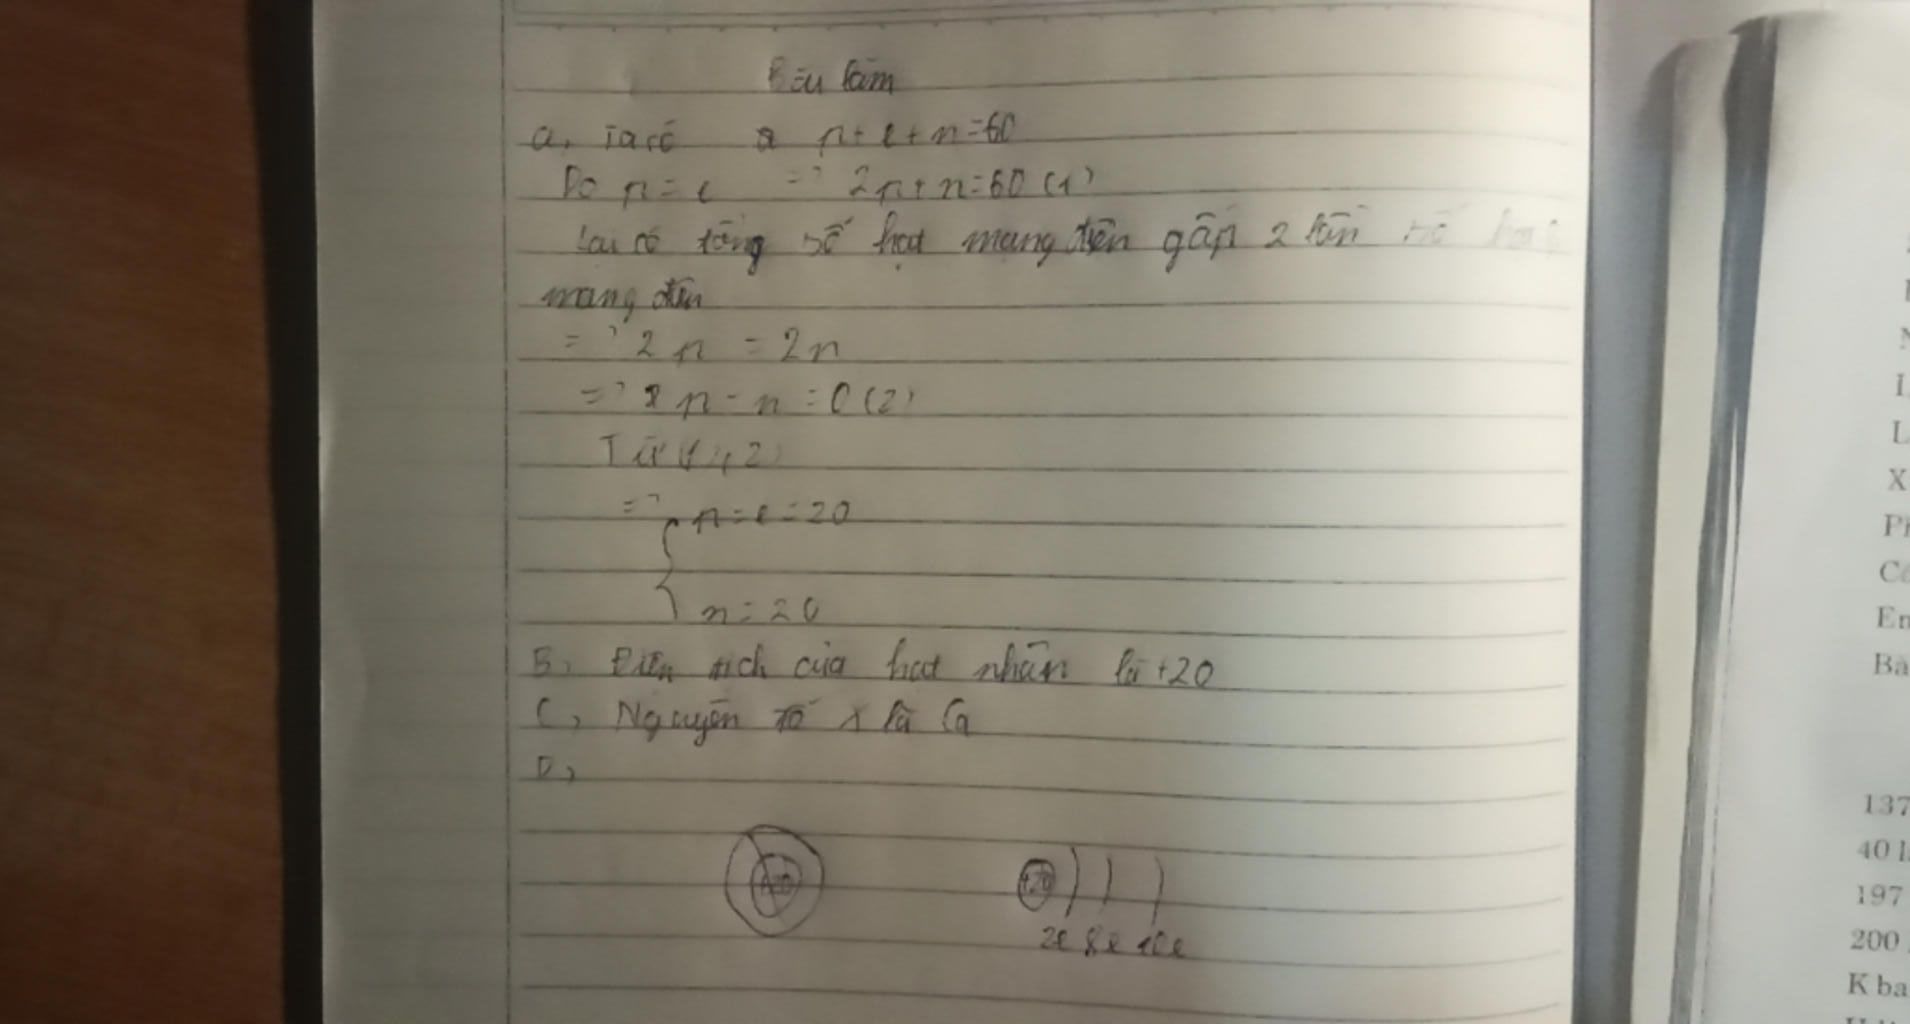 Bài làm
a, Ta có p + e + n = 60
Do p = e => 2p + n = 60 (1)
Lại có tổng số hạt mang điện gấp 2 lần số
mang điện
=> 2p = 2n
=> p - n = 0 (2)
Từ (1), (2)
=> p = e = 20
n = 20
B, Điện tích của hạt nhân là +20
C, Nguyên tố X là Ca
D,
+20
2e 8e 10e
137
40
197
200
K ba
L
X